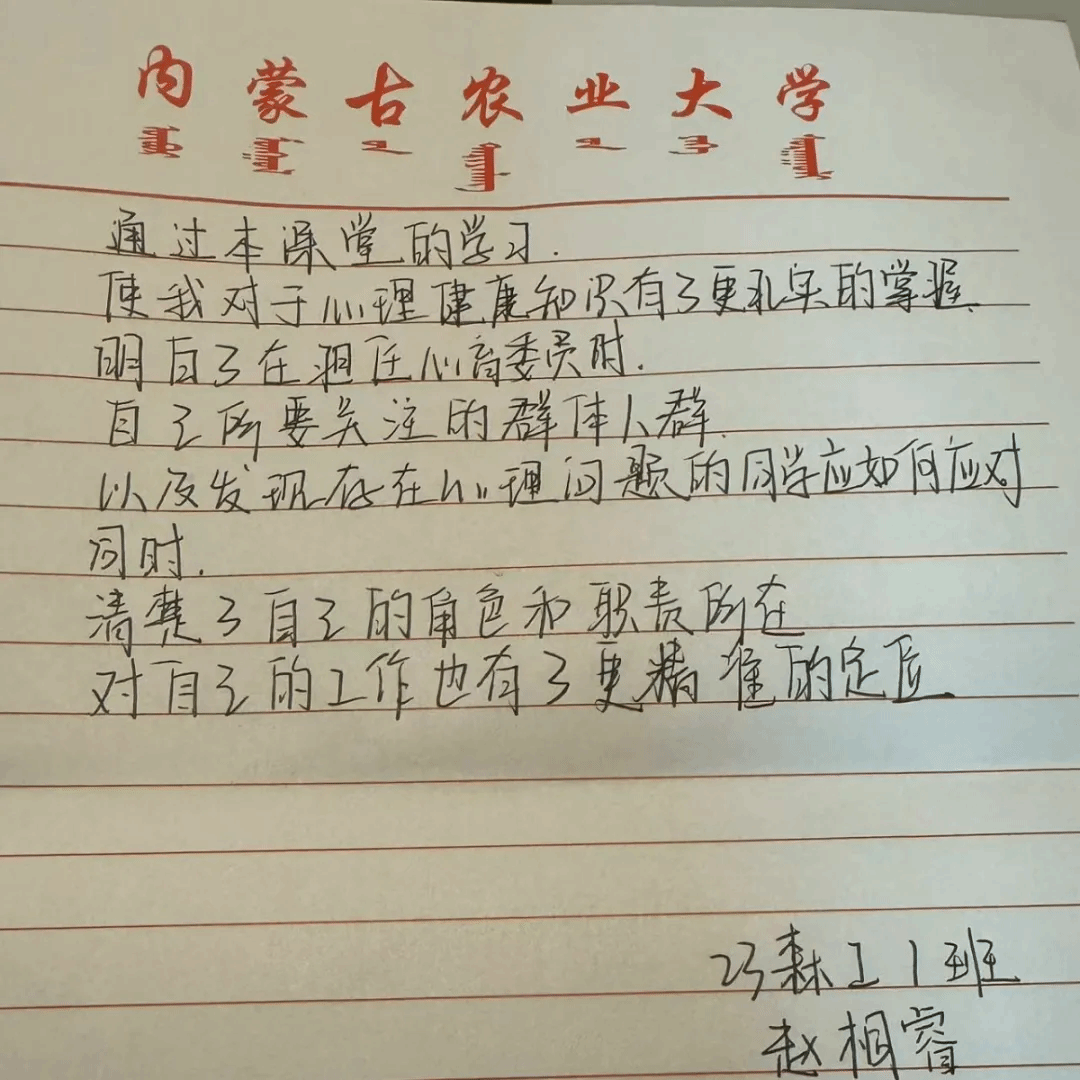 内蒙古农业大学
通过本课堂的学习.
使我对于心理健康知识有了更扎实的掌握.
明白了在担任心育委员时.
自己所要关注的群体人群.
以及发现存在心理问题的同学应如何应对
同时.
清楚了自己的角色和职责所在
对自己的工作也有了更精准的定位
23森工1班
赵相睿